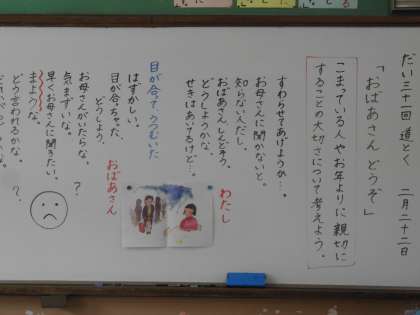 だい三十一回 道とく 二月二十二日
「おばあさん どうぞ」
こまっている人やお年よりに親切に
することの大切さについて考えよう。
わたし
すわらせてあげようか…。
お母さんに聞かないと。
知らない人だし、
おばあさん、しんどそう。
どうしようかな。
せきはあいてるけど…。
目が合って、うつむいた
おばあさん
はずかしい。
目が合っちゃった、
どうしよう。
お母さんがいたらな。
気まずいな。
早くお母さんに聞きたい。
まような。
どう言われるかな。
？
？